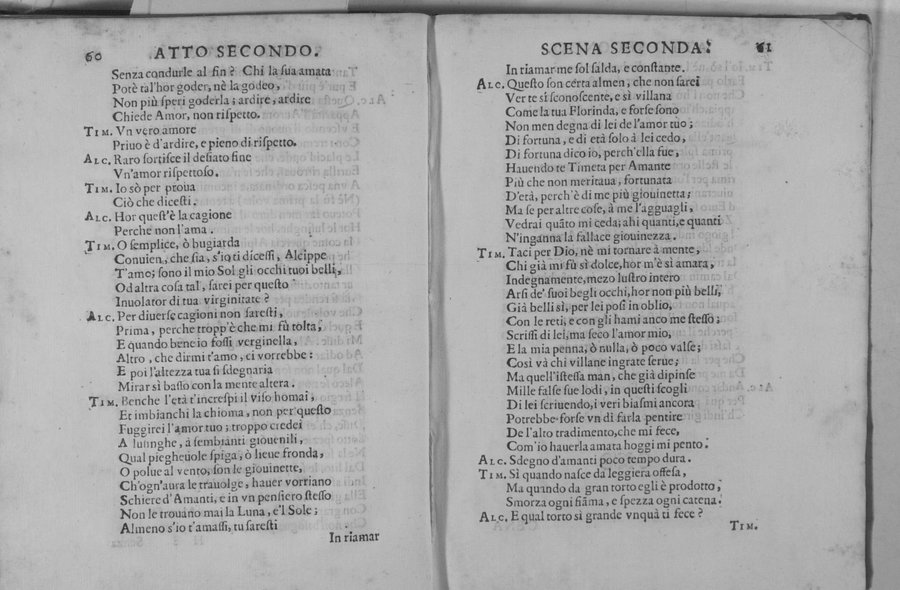 60 ATTO SECONDO.
Senza condurle al fin? Chi la sua amata
Potè tal'hor goder, nè la godeo,
Non più speri goderla; ardire, ardire
Chiede Amor, non rispetto.
TIM. Vn vero amore
Priuo è d'ardire, e pieno di rispetto.
ALC. Raro sortisce il desiato fine
Vn'amor rispettoso.
TIM. Io sò per proua
Ciò che dicesti.
ALC. Hor quest'è la cagione
Perche non l'ama.
TIM. O semplice, ò bugiarda
Conuien, che sia, s'io ti dicessi, Alcippe
T'amo; sono il mio Sol gli occhi tuoi belli,
Od altra cosa tal, sarei per questo
Inuolator di tua virginitate?
ALC. Per diuerse cagioni non saresti,
Prima, perche tropp'è che mi fù tolta,
E quando bene io fossi verginella,
Altro, che dirmi t'amo, ci vorrebbe:
E poi l'altezza tua si sdegnaria
Mirar sì basso con la mente altera.
TIM. Benche l'età t'increspi il viso homai,
Et imbianchi la chioma, non per questo
Fuggirei l'amor tuo; troppo credei
A lusinghe, à sembianti giouenili,
Qual piegheuole spiga, ò lieue fronda,
O polue al vento, son le giouinette,
Ch'ogn'aura le trauolge, hauer vorriano
Schiere d'Amanti, e in vn pensiero stesso
Non le trouano mai la Luna, e'l Sole;
Almeno s'io t'amassi, tu saresti
In riamar
SCENA SECONDA. 61
In riamar me sol salda, e constante.
ALC. Questo son certa almen, che non sarei
Ver te sì sconoscente, e sì villana
Come la tua Florinda, e forse sono
Non men degna di lei de l'amor tuo;
Di fortuna, e di età solo à lei cedo,
Di fortuna dico io, perch'ella fue,
Hauendo te Timeta per Amante
Più che non meritaua, fortunata
D'età, perch'è di me più giouinetta;
Ma se per altre cose, à me l'agguagli,
Vedrai quãto mi ceda; ahi quanti, e quanti
N'inganna la fallace giouinezza.
TIM. Taci per Dio, nè mi tornare à mente,
Chi già mi fù sì dolce, hor m'è sì amara,
Indegnamente, mezo lustro intero
Arsi de' suoi begli occhi, hor non più belli,
Già belli sì, per lei posi in oblio,
Con le reti, e con gli hami anco me stesso;
Scrissi di lei, ma seco l'amor mio,
E la mia penna, ò nulla, ò poco valse;
Così và chi villane ingrate serue;
Ma quell'istessa man, che già dipinse
Mille false sue lodi, in questi scogli
Di lei scriuendo, i veri biasmi ancora
Potrebbe forse vn dì farla pentire
De l'alto tradimento, che mi fece,
Com'io hauerla amata hoggi mi pento.
ALC. Sdegno d'amanti poco tempo dura.
TIM. Sì quando nasce da leggiera offesa,
Ma quando da gran torto egli è prodotto,
Smorza ogni fiãma, e spezza ogni catena.
ALC. E qual torto sì grande vnquà ti fece?
TIM.